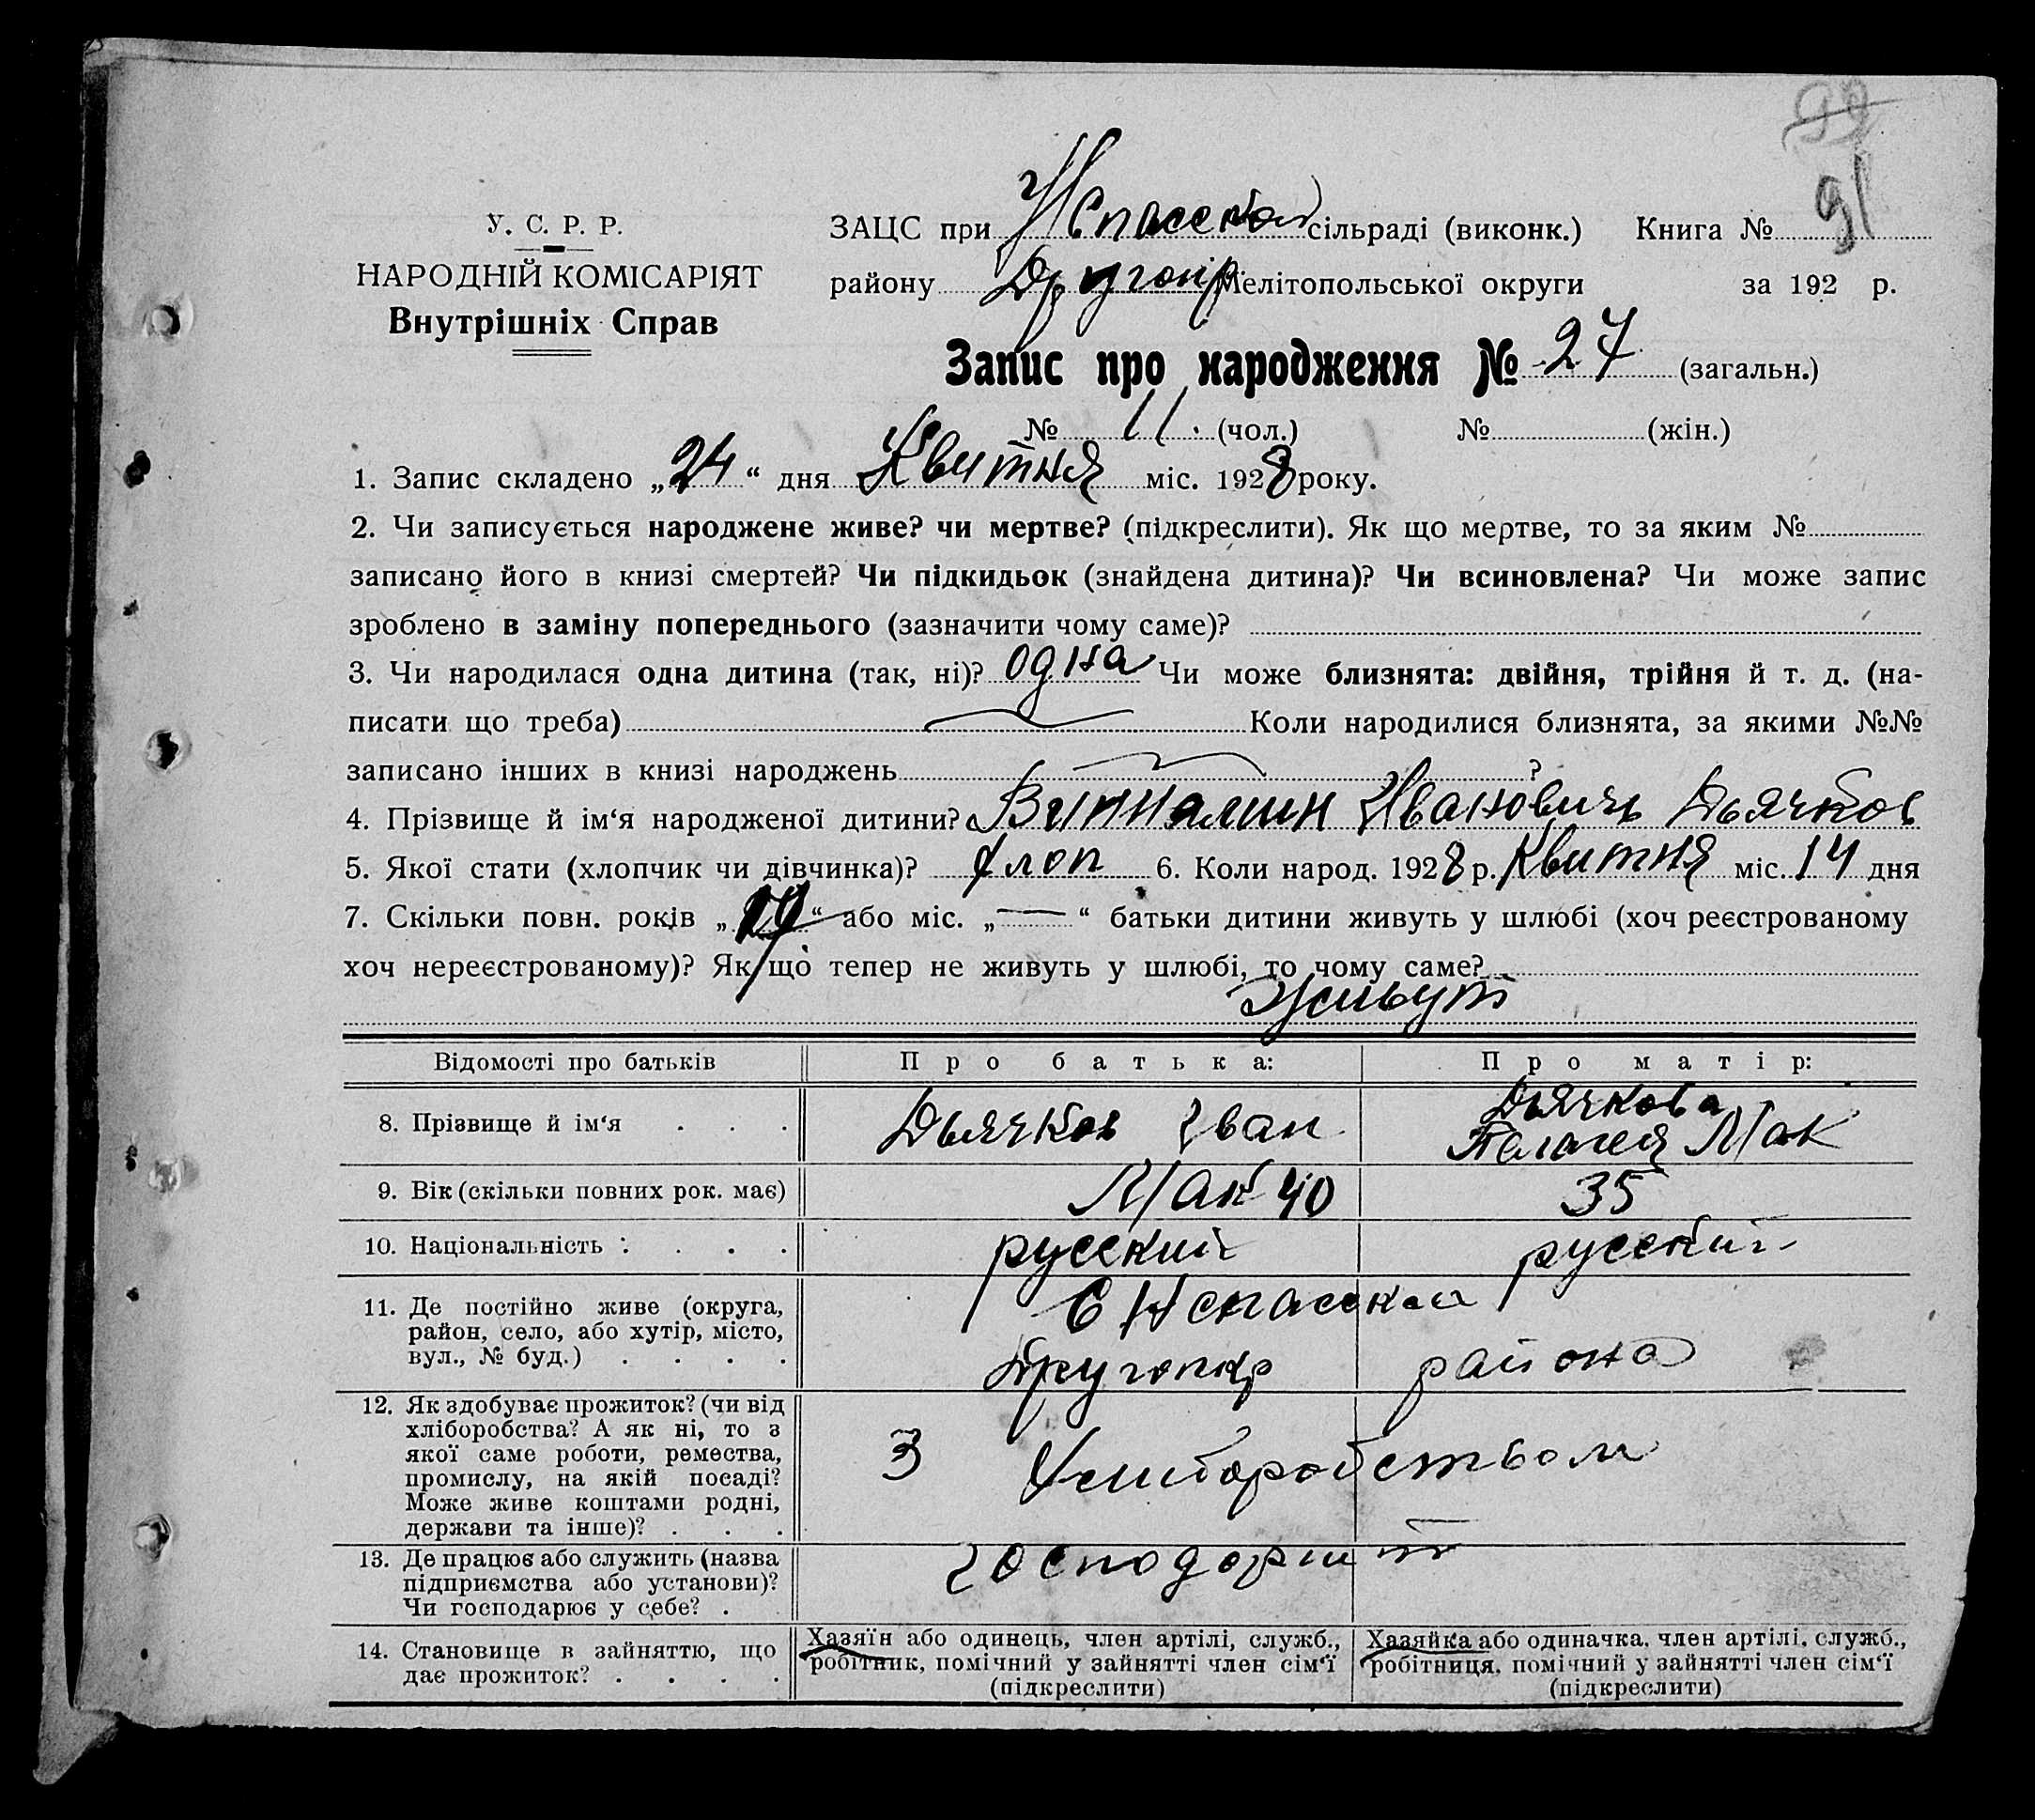 99
91
У. С. Р. Р.
НАРОДНІЙ КОМІСАРІЯТ
Внутрішніх Справ
ЗАЦС при Нспасской сільраді (виконк.) Книга №
району Другопкр Мелітопольської округи за 192 р.
Запис про народження № 27 (загальн.)
№ 11. (чол.) № (жін.)
1. Запис складено „24“ дня Квитня міс. 1928 року.
2. Чи записується народжене живе? чи мертве? (підкреслити). Як що мертве, то за яким №
записано його в книзі смертей? Чи підкидьок (знайдена дитина)? Чи всиновлена? Чи може запис
зроблено в заміну попереднього (зазначити чому саме)?
3. Чи народилася одна дитина (так, ні)? одна Чи може близнята: двійня, трійня й т. д. (на-
писати що треба) Коли народилися близнята, за якими №№
записано інших в книзі народжень ?
4. Прізвище й ім‘я народженої дитини? Иванович Дьячков
5. Якої стати (хлопчик чи дівчинка)? хлоп 6. Коли народ. 1928 р. Квитня міс. 14 дня
7. Скільки повн. років „ “ або міс. „—“ батьки дитини живуть у шлюбі (хоч реєстрованому
хоч нереєстрованому)? Як що тепер не живуть у шлюбі, то чому саме?
Живут
Відомості про батьків Про батька: Про матір:
8. Прізвище й ім‘я . . . Дьячков Иван Дьячкова
Палагея Мак
9. Вік (скільки повних рок. має) Мак 40 35
10. Національність . . . . русский русский
11. Де постійно живе (округа,
район, село, або хутір, місто,
вул., № буд.) . . . .
С Нспасском
Другопкр района
12. Як здобуває прожиток? (чи від
хліборобства? А як ні, то з
якої саме роботи, ремества,
промислу, на якій посаді?
Може живе коштами родні,
держави та інше)? . . .
З Хлиборобством
13. Де працює або служить (назва
підприємства або установи)?
Чи господарює у себе? .
господорит
14. Становище в зайняттю, що
дає прожиток? . . . .
Хазяїн або одинець, член артілі, служб.,
робітник, помічний у зайнятті член сім‘ї
(підкреслити)
Хазяйка або одиначка, член артілі, служб.,
робітниця, помічний у зайнятті член сім‘ї
(підкреслити)